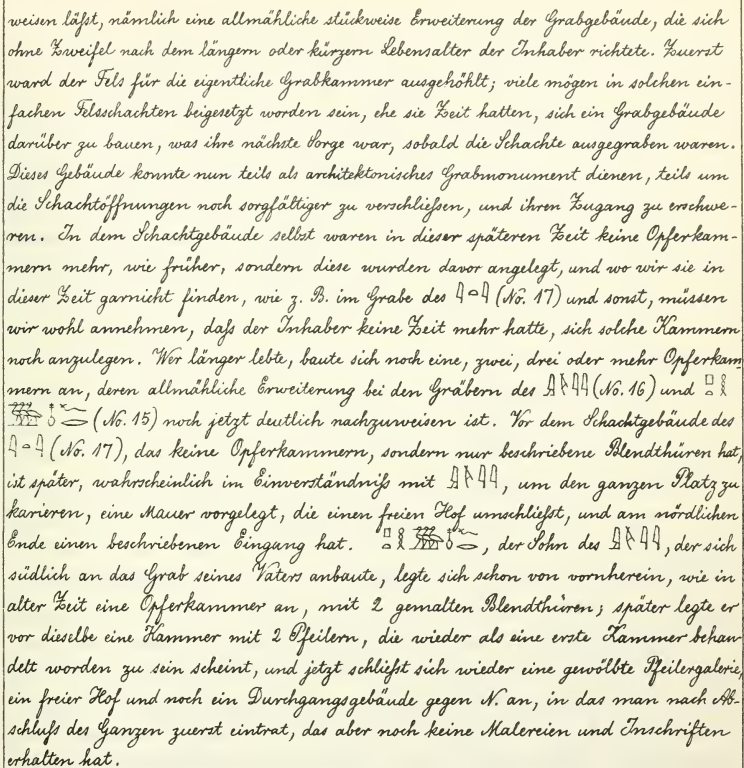 weisen läßt, nämlich eine allmähliche stückweise Erweiterung der Grabgebäude, die sich
ohne Zweifel nach dem längern oder kürzern Lebensalter der Inhaber richtete. Zuerst
ward der Fels für die eigentliche Grabkammer ausgehöhlt; viele mögen in solchen ein-
fachen Felsschachten beigesetzt worden sein, ehe sie Zeit hatten, sich ein Grabgebäude
darüber zu bauen, was ihre nächste Sorge war, sobald die Schachte ausgegraben waren.
Dieses Gebäude konnte nun teils als architektonisches Grabmonument dienen, teils um
die Schachtöffnungen noch sorgfältiger zu verschließen, und ihren Zugang zu erschwe-
ren. In dem Schachtgebäude selbst waren in dieser späteren Zeit keine Opferkam-
mern mehr, wie früher, sondern diese wurden davor angelegt, und wo wir sie in
dieser Zeit garnicht finden, wie z. B. im Grabe des 𓇋𓏏𓇋 (No. 17) und sonst, müssen
wir wohl annehmen, daß der Inhaber keine Zeit mehr hatte, sich solche Kammern
noch anzulegen. Wer länger lebte, baute sich noch eine, zwei, drei oder mehr Opferkam-
mern an, deren allmähliche Erweiterung bei den Gräbern des (No. 16) und
(No. 15) noch jetzt deutlich nachzuweisen ist. Vor dem Schachtgebäude des
𓇋𓏏𓇋 (No. 17), das keine Opferkammern, sondern nur beschriebene Blendthüren hat,
ist später, wahrscheinlich im Einverständniß mit , um den ganzen Platz zu
karieren, eine Mauer vorgelegt, die einen freien Hof umschließt, und am nördlichen
Ende einen beschriebenen Eingang hat. , der Sohn des , der sich
südlich an das Grab seines Vaters anbaute, legte sich schon von vornherein, wie in
alter Zeit eine Opferkammer an, mit 2 gemalten Blendthüren; später legte er
vor dieselbe eine Kammer mit 2 Pfeilern, die wieder als eine erste Kammer behan-
delt worden zu sein scheint, und jetzt schließt sich wieder eine gewölbte Pfeilergalerie,
ein freier Hof und noch ein Durchgangsgebäude gegen N. an, in das man nach Ab-
schluß des Ganzen zuerst eintrat, das aber noch keine Malereien und Inschriften
erhalten hat.